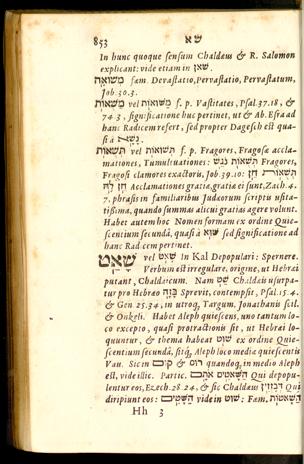 853 שא
In hunc quoque sensum Chaldæus & R. Salomon
explicant: vide etiam in שאן.
משואה fæm. Devastatio, Pervastatio, Pervastatum,
Job. 30. 3.
משואות vel f. p. Vastitates, Psal. 37. 18, &
74 3, significatione huc pertinet, ut & Ab. Esra ad
hanc Radicem refert, sed propter Dagesch est qua-
si à נשא.
תשואות vel f. p. Fragores. Fragosæ accla-
mationes, Tumultuationes: Fragores,
Fragosi clamores exactoris, Job. 39. 10: חן
חן לה Acclamationes gratia, gratia ei sunt, Zach. 4.
7. phrasis in familiaribus Judæorum scriptis usita-
tissima, quando summas alicui gratias agere volunt.
Habet autem hoc Nomen formam ex ordine Quie-
scentium secundâ, quasi à שוא sed significatione ad
hanc Radicem pertinet.
שאט vel שאט in Kal Depopulari: Spernere.
Verbum est irregulare, origine, ut Hebræi
putant, Chaldaicum. Nam שט Chaldaicè usurpa-
tur pro Hebræo בזה Sprevit, contempsit, Psal. 15. 4.
& Gen. 25. 34, in utroq; Targum, Jonathanis scil.
& Onkeli. Habet Aleph quiescens, uno tantum lo-
co excepto, quasi protractionis sit, ut Hebræi lo-
quuntur, & thema habeat שוט ex ordine Quie-
scentium secundâ, sitq; Aleph loco mediæ quiescentis
Vau. Sic in קום & רוס quandoq; in medio Aleph
est, vide illic. Partic. השאטים אתם Qui depopu-
lentur eos, Ezech. 28. 24, & sic Chaldæus Qui
diripiunt eos: השטים vide in שוט: Fæm. השאטות
Hh 3